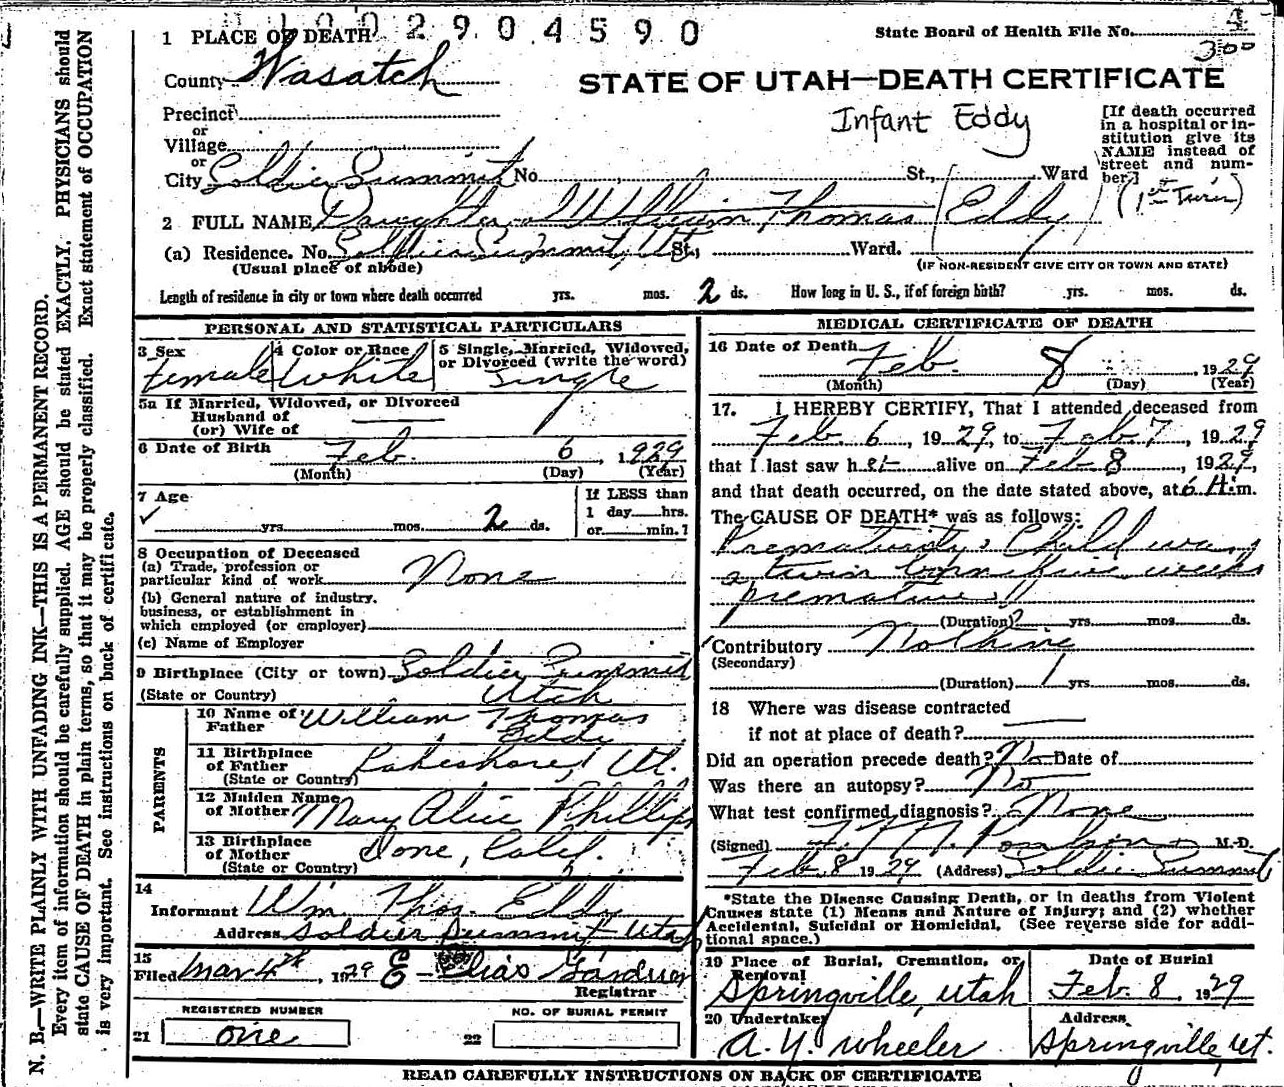 1002904590
State Board of Health File No.
4
300
1 PLACE OF DEATH
County Wasatch
STATE OF UTAH—DEATH CERTIFICATE
Precinct
or
Village
or
City Soldier Summit No. St., Ward
Infant Eddy
[If death occurred
in a hospital or in-
stitution give its
NAME instead of
street and num-
ber.]
(1st Twin)
2 FULL NAME Daughter of William Thomas (Eddy)
(a) Residence. No. Soldier Summit, Ut. St., Ward.
(Usual place of abode) (IF NON-RESIDENT GIVE CITY OR TOWN AND STATE)
Length of residence in city or town where death occurred yrs. mos. 2 ds. How long in U. S., if of foreign birth? yrs. mos. ds.
PERSONAL AND STATISTICAL PARTICULARS
3 Sex 4 Color or Race 5 Single, Married, Widowed,
or Divorced (write the word)
Female White Single
5a If Married, Widowed, or Divorced
Husband of
(or) Wife of
6 Date of Birth Feb. 6, 1929
(Month) (Day) (Year)
7 Age If LESS than
1 day hrs.
✓ yrs. mos. 2 ds. or min.?
8 Occupation of Deceased
(a) Trade, profession or
particular kind of work None
(b) General nature of industry,
business, or establishment in
which employed (or employer)
(c) Name of Employer
9 Birthplace (City or town) Soldier Summit
(State or Country) Utah
PARENTS
10 Name of Father William Thomas
Eddy
11 Birthplace
of Father Lakeshore, Ut.
(State or Country)
12 Maiden Name
of Mother Mary Alice Phillips
13 Birthplace
of Mother Ione, Calif.
(State or Country)
14
Informant Wm. Thos. Eddy
Address Soldier Summit Utah
15
Filed Mar 4th, 1929 Elias Gardner
Registrar
REGISTERED NUMBER NO. OF BURIAL PERMIT
21 one 22
MEDICAL CERTIFICATE OF DEATH
16 Date of Death
Feb. 8, 1929
(Month) (Day) (Year)
17. I HEREBY CERTIFY, That I attended deceased from
Feb 6, 1929, to Feb 7, 1929
that I last saw her alive on Feb 8, 1929,
and that death occurred, on the date stated above, at 6 A.m.
The CAUSE OF DEATH* was as follows:
Prematurity, Child was
a twin born five weeks
premature
(Duration) yrs. mos. ds.
Contributory Nothing
(Secondary)
(Duration) yrs. mos. ds.
18 Where was disease contracted
if not at place of death?
Did an operation precede death? No Date of
Was there an autopsy? No
What test confirmed diagnosis? None
(Signed) M.D.
Feb 8 1929 (Address) Soldier Summit
*State the Disease Causing Death, or in deaths from Violent
Causes state (1) Means and Nature of Injury; and (2) whether
Accidental, Suicidal or Homicidal. (See reverse side for addi-
tional space.)
19 Place of Burial, Cremation, or Date of Burial
Removal
Springville, Utah Feb. 8, 1929
20 Undertaker Address
A. Y. Wheeler Springville, Ut.
READ CAREFULLY INSTRUCTIONS ON BACK OF CERTIFICATE
N. B.—WRITE PLAINLY WITH UNFADING INK—THIS IS A PERMANENT RECORD.
Every item of information should be carefully supplied. AGE should be stated EXACTLY. PHYSICIANS should
state CAUSE OF DEATH in plain terms, so that it may be properly classified. Exact statement of OCCUPATION
is very important. See instructions on back of certificate.